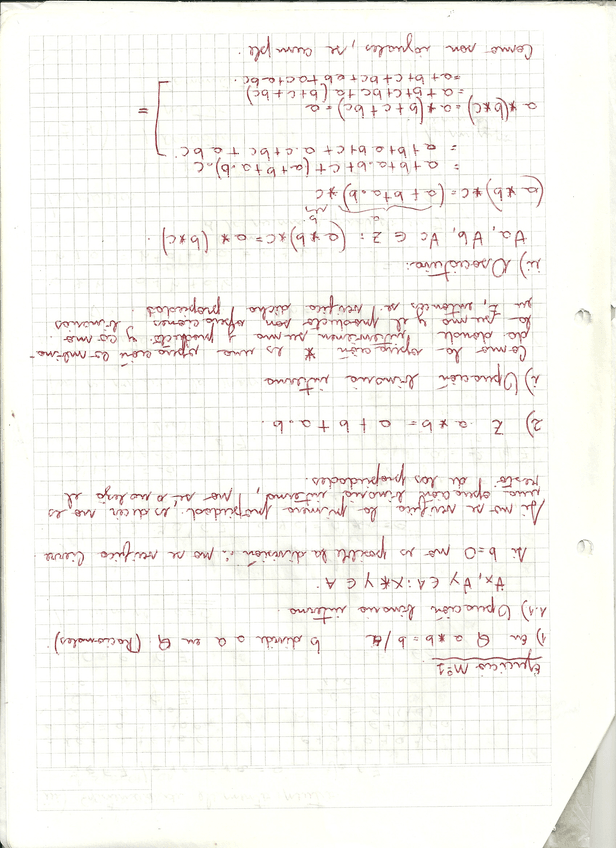 Ejercicio Nº1
1) En Q a * b = b/a b divide a a en Q (Racionales)
1.1) Operación binaria interna.
∀x, ∀y ∈ A: x * y ∈ A.
Si b=0 no es posible la división ∴ no se verifica cierre
Si no se verifica la primera propiedad, es decir, no es
una operación binaria interna, no se analiza el
resto de las propiedades.
2) Z a * b = a + b + a.b.
i) Operación binaria interna
Como la operación * es una operación combina-
da donde intervienen suma y producto y como
la suma y el producto son operaciones binarias
en Z, entonces se verifica dicha propiedad.
ii) Asociativa:
∀a, ∀b, ∀c ∈ Z: (a*b)*c = a*(b*c).
a b
(a*b)*c = (a+b+a.b)*c
= a+b+a.b+c+(a+b+a.b).c
= a+b+ab+c+a.c+bc+abc
=
a*(b*c) = a*(b+c+bc) = a
= a+b+c+bc+a(b+c+bc)
= a+b+c+bc+ab+ac+abc.
Como son iguales, se cumple.